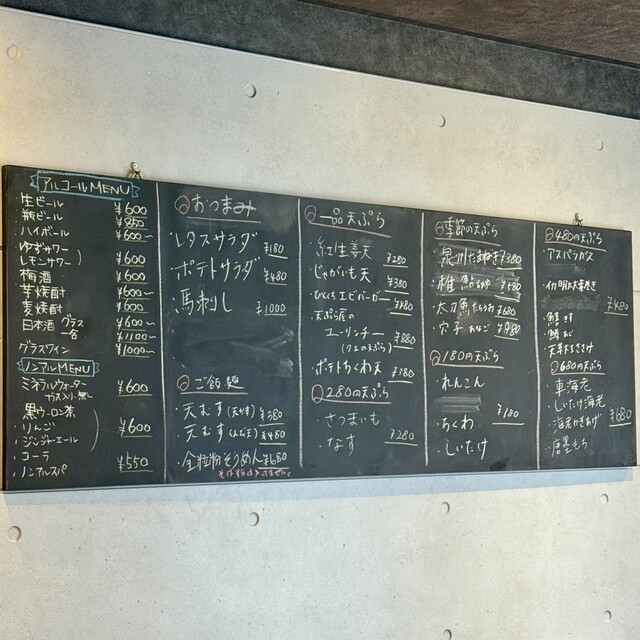 アルコールMENU
・生ビール ¥600
・瓶ビール ¥850
・ハイボール ¥600〜
・ゆずサワー
・レモンサワー ¥600
・梅酒 ¥600
・芋焼酎 ¥600〜
・麦焼酎 ¥600
・日本酒 グラス ¥600〜
一合 ¥1100〜
・グラスワイン ¥1000〜
ノンアルMENU
・ミネラルウォーター
ガス入り・無し ¥600
・黒ウーロン茶
・りんご ¥600
・ジンジャーエール
・コーラ
・ノンアルスパ ¥550
おつまみ
・レタスサラダ ¥180
・ポテトサラダ ¥480
・馬刺し ¥1000
ご飯・麺
・天むす(天かす) ¥380
・天むす ¥480
・全粒粉そうめん ¥680
一品天ぷら
・紅生姜天 ¥280
・じゃがいも天 ¥380
・ひとくちエビバーガー ¥480
・天ぷら屋の
ユーリンチー ¥880
・ポテトちくわ天 ¥380
280の天ぷら
・さつまいも
・なす ¥280
季節の天ぷら
・泉州たまねぎ ¥380
・稚鮎
・太刀魚 ¥680
・穴子 ¥980
180の天ぷら
・れんこん
¥180
・ちくわ
・しいたけ
480の天ぷら
・アスパラガス
¥480
680の天ぷら
・車海老
・しいたけ海老
・海老かきあげ ¥680